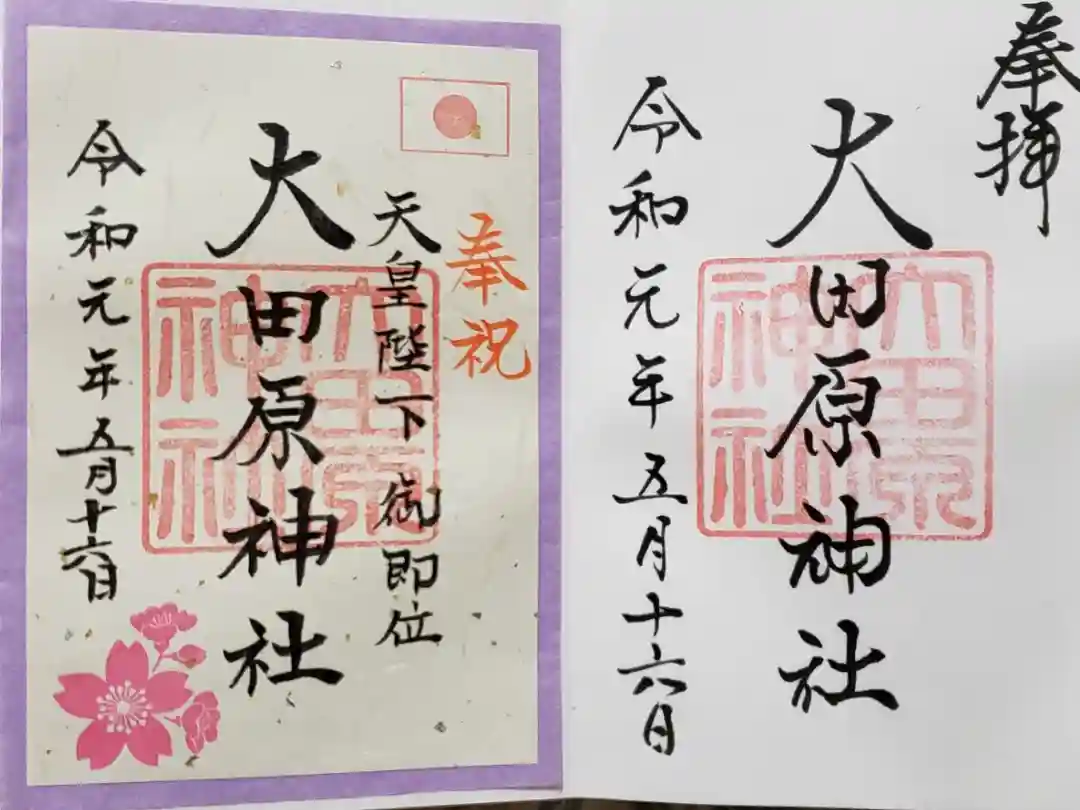 奉拝
大田原神社
令和元年五月十六日
奉祝
天皇陛下御即位
大田原神社
令和元年五月十六日
大田原神社
大田原神社